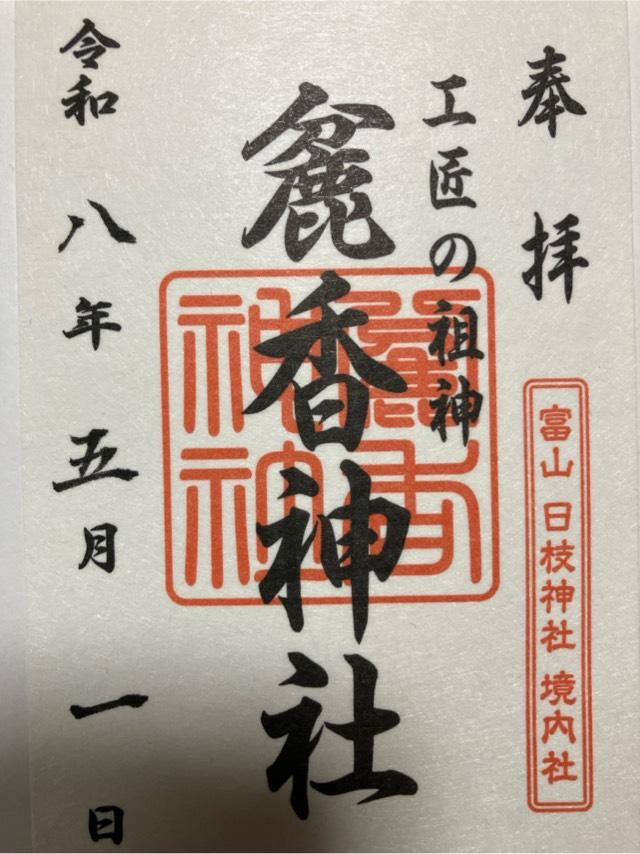 奉拝
富山 日枝神社 境内社
工匠の祖神
麁香神社
香
神社
令和八年五月一日